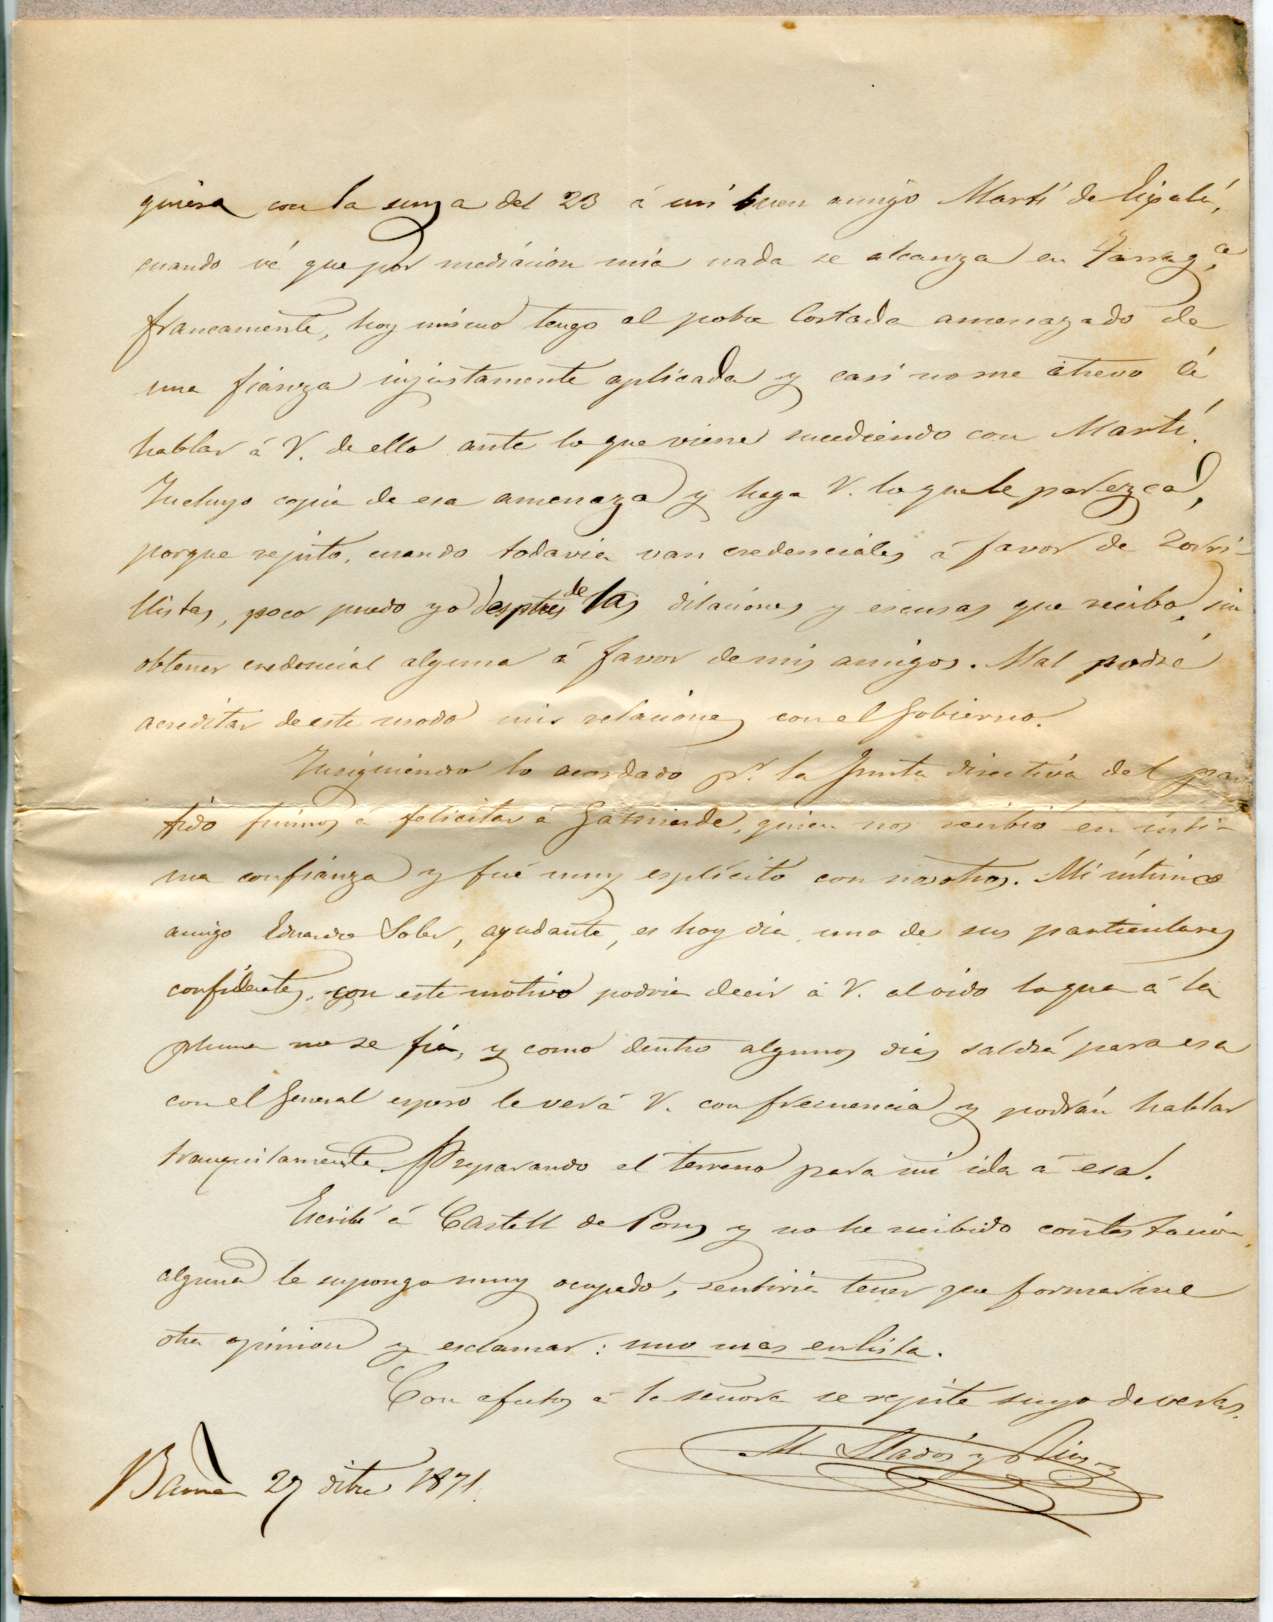 quiera con la suya del 23 á mi buen amigo Martí de
cuando vé que por mediacion mia nada se alcanza en Tarrag.ª
francamente, hoy mismo tengo al pobre Cortada amenazado de
una fianza injustamente aplicada y casi no me atrevo á
hablar á V. de ello ante lo que viene sucediendo con Martí.
Incluyo copia de esa amenaza y haga V. lo que le parezca,
porque repito, cuando todavia van credenciales á favor de Zorri-
llistas, poco puedo yo despues de las dilaciones y escusas que recibo, sin
obtener credencial alguna á favor de mis amigos. Mal podré
acreditar de este modo mis relaciones con el Gobierno.
Insiguiendo lo acordado pr. la Junta directiva del par
tido fuimos á felicitar á Gaminde, quien nos recibió en inti-
ma confianza y fué muy esplícito con nosotros. Mi íntimo
amigo Eduardo Soler, ayudante, es hoy dia uno de sus particulares
confidentes, con este motivo podria decir á V. al oido lo que á la
pluma no se fia, y como dentro algunos dias saldrá para esa
con el General espero le verá V. con frecuencia y podrán hablar
tranquilamente. Preparando el terreno para mi ida á esa.
Escribí á Castell de Pons y no he recibido contestacion
alguna le supongo muy ocupado, sentiria tener que formarme
otra opinion y esclamar: uno mas en lista.
Con afectos á la señora se repite suyo de veras.
M
Barna 27 dbre 1871.